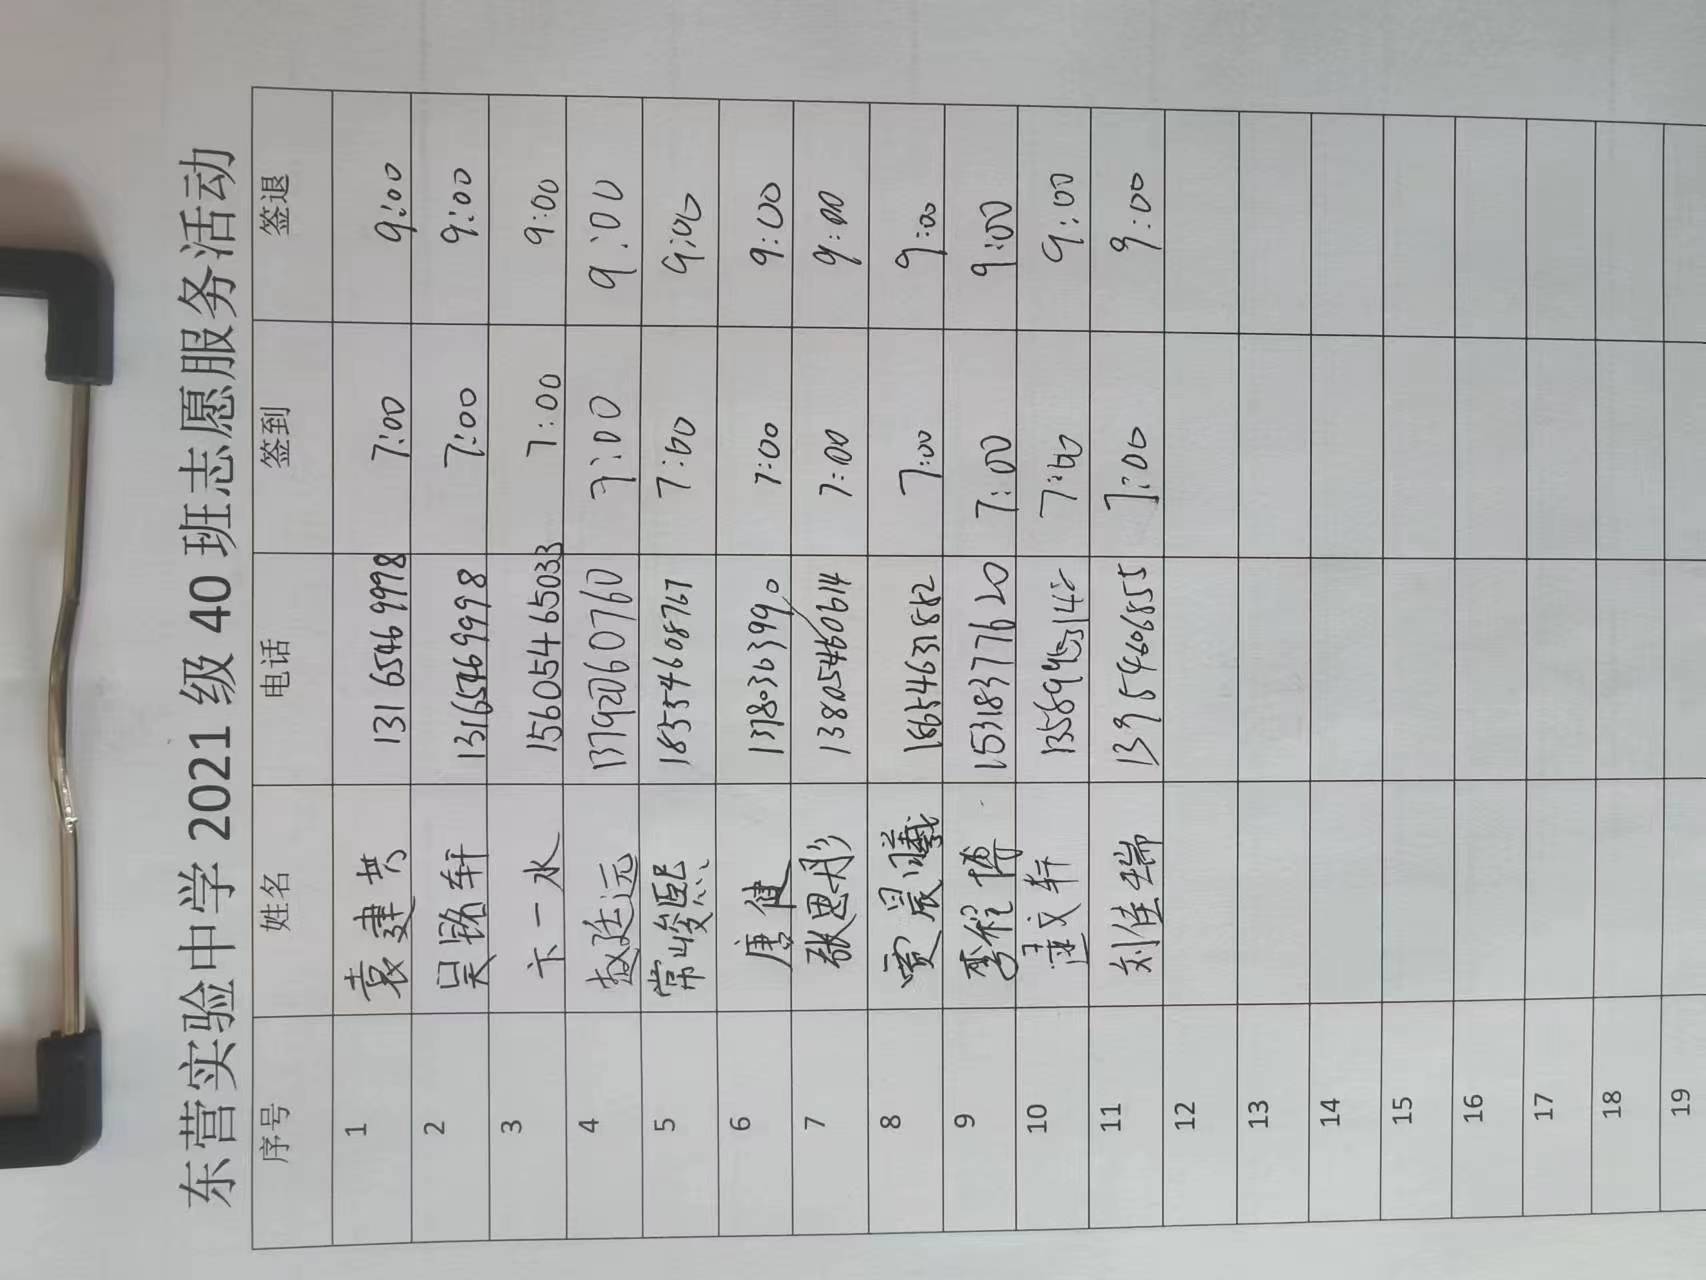 东营实验中学 2021 级 40 班志愿服务活动
序号 姓名 电话 签到 签退
1 袁建共 13165469998 7:00 9:00
2 吴铭轩 13165469998 7:00 9:00
3 卞一水 15605465033 7:00 9:00
4 赵廷远 13792060760 7:00 9:00
5 常峻熙 18554608767 7:00 9:00
6 唐健 13780363990 7:00 9:00
7 张思彤 13805460614 7:00 9:00
8 贾晨曦 18654631882 7:00 9:00
9 李程博 15318377620 7:00 9:00
10 文轩 7:00 9:00
11 刘佳瑞 13954606855 7:00 9:00
12
13
14
15
16
17
18
19